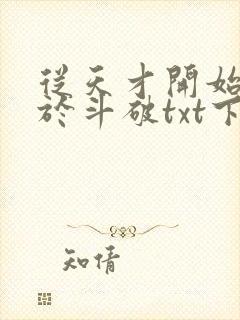 從天才開始
於斗破txt下
知情